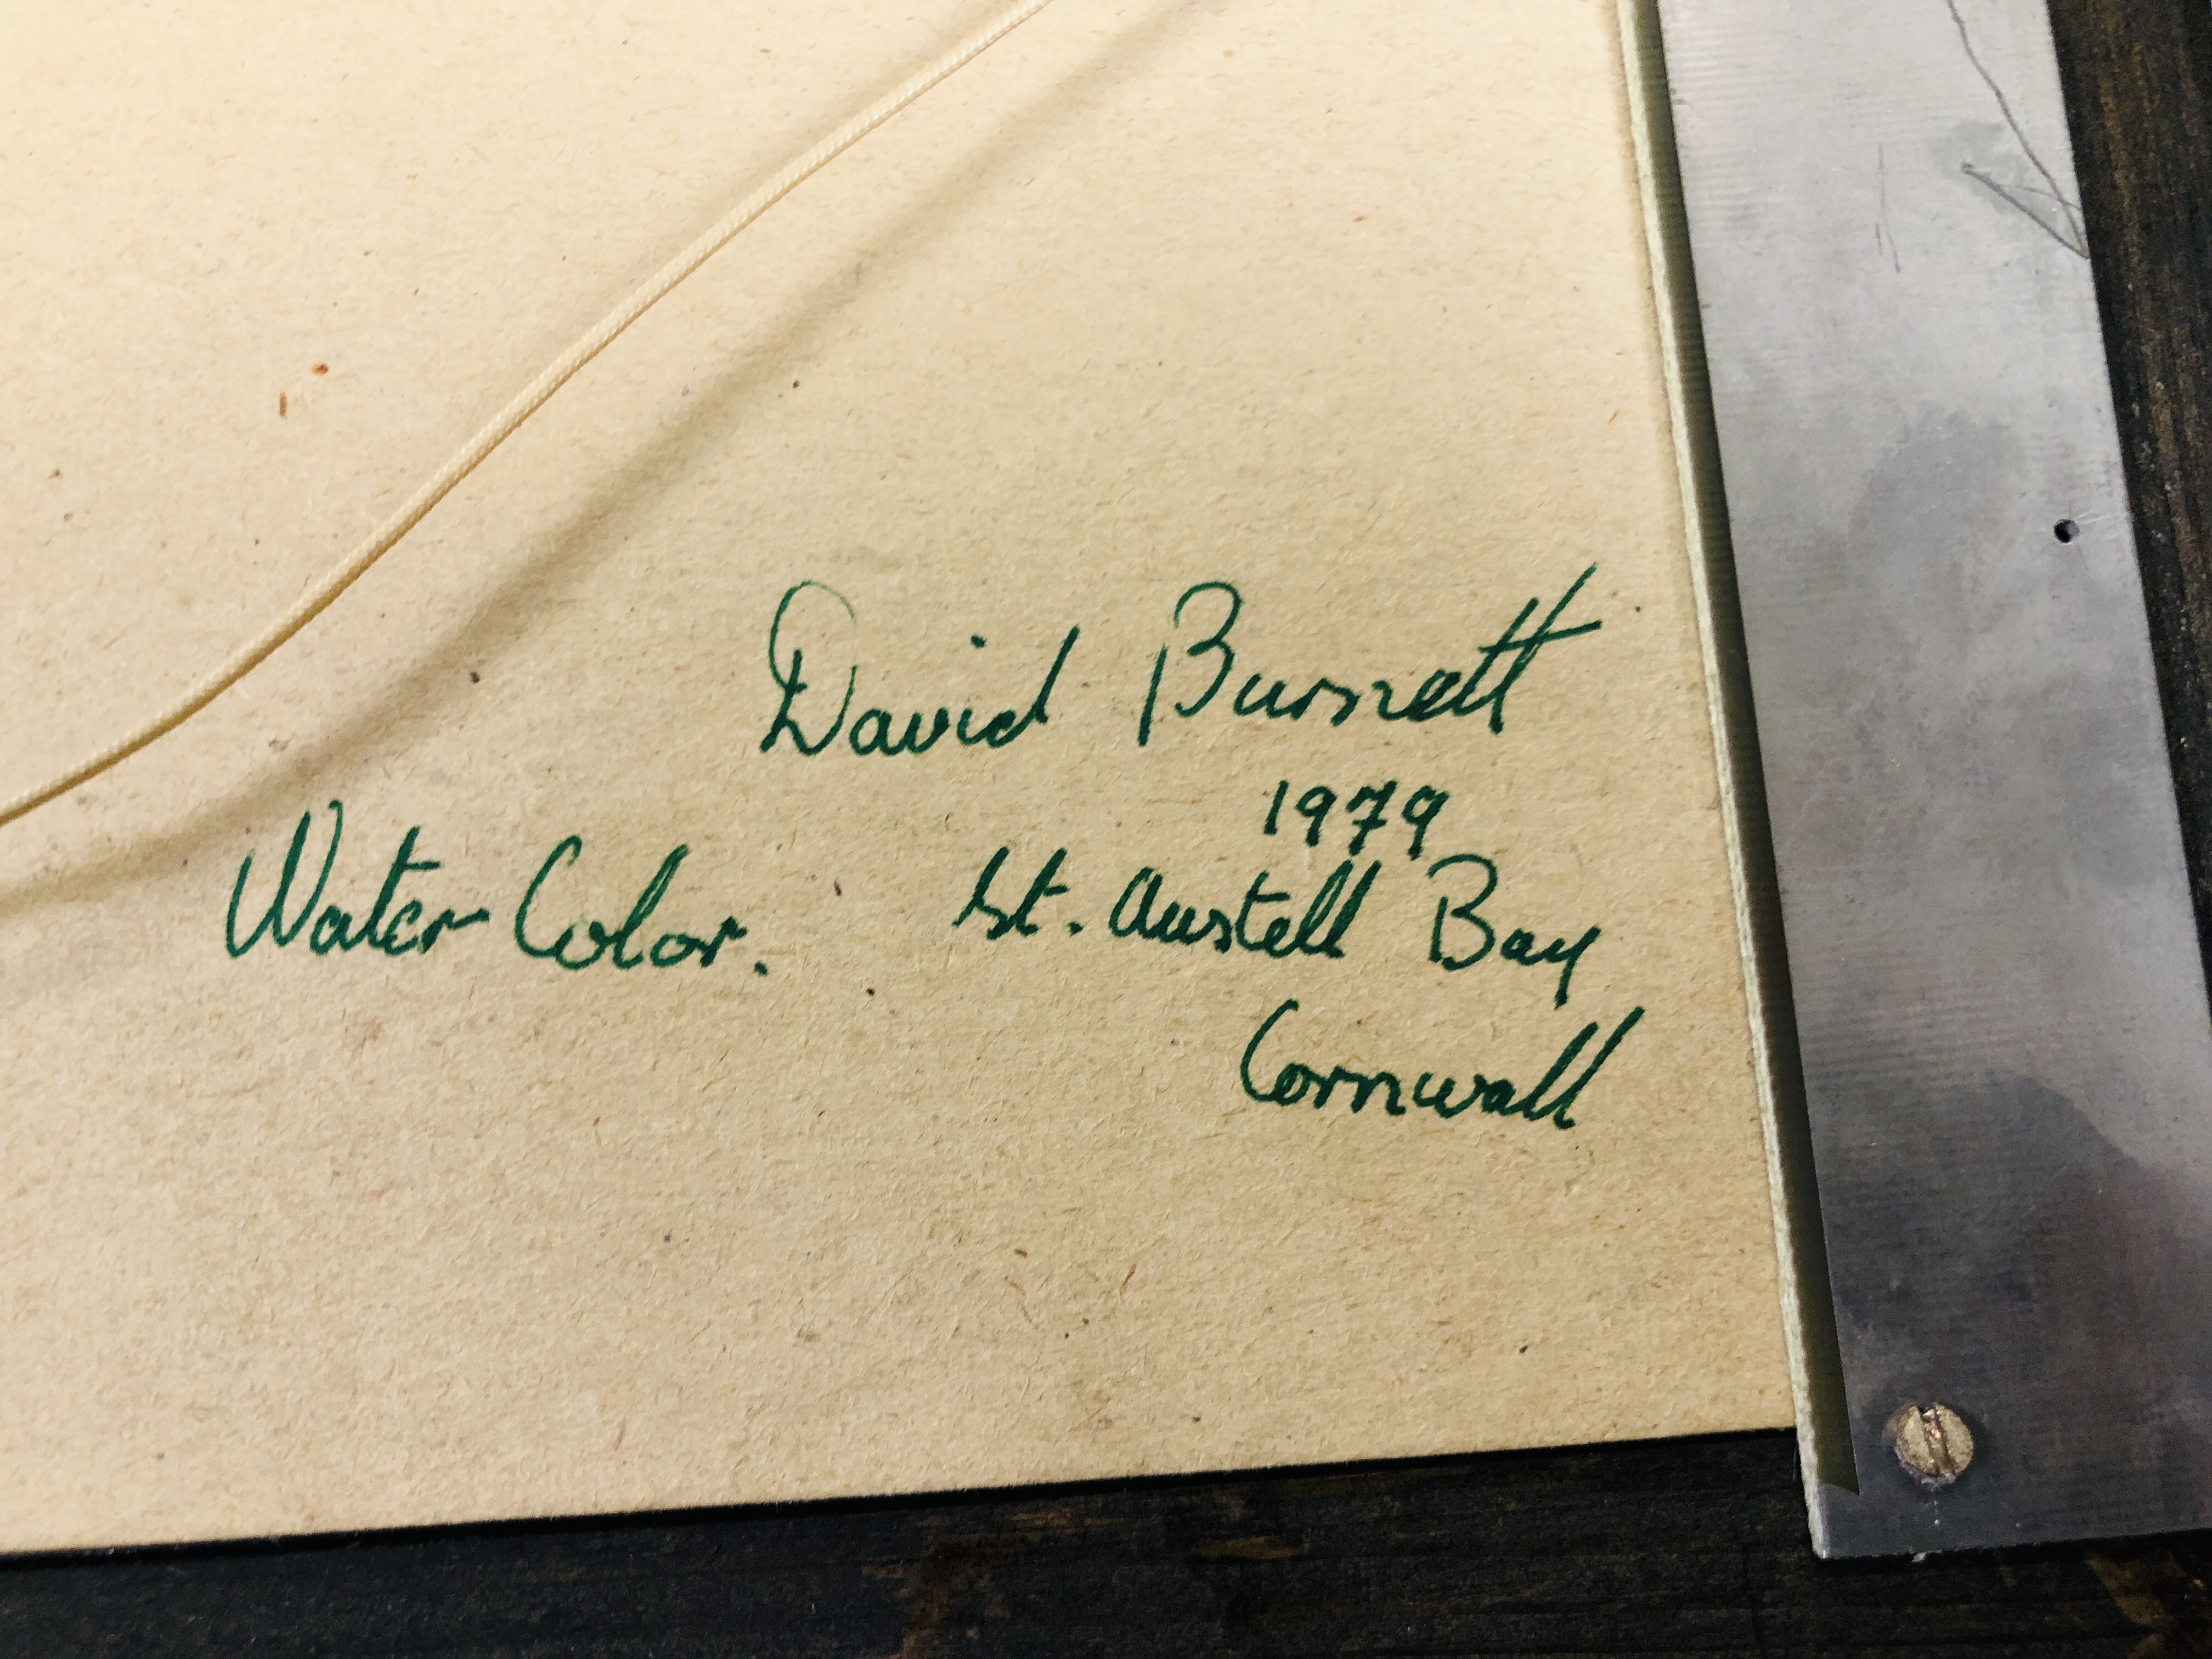 David Burnett
1979
Water Color. St. Austell Bay
Cornwall